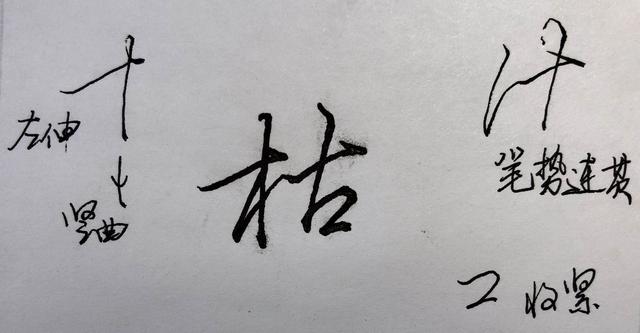 左伸
竖曲
枯
笔势连贯
收紧